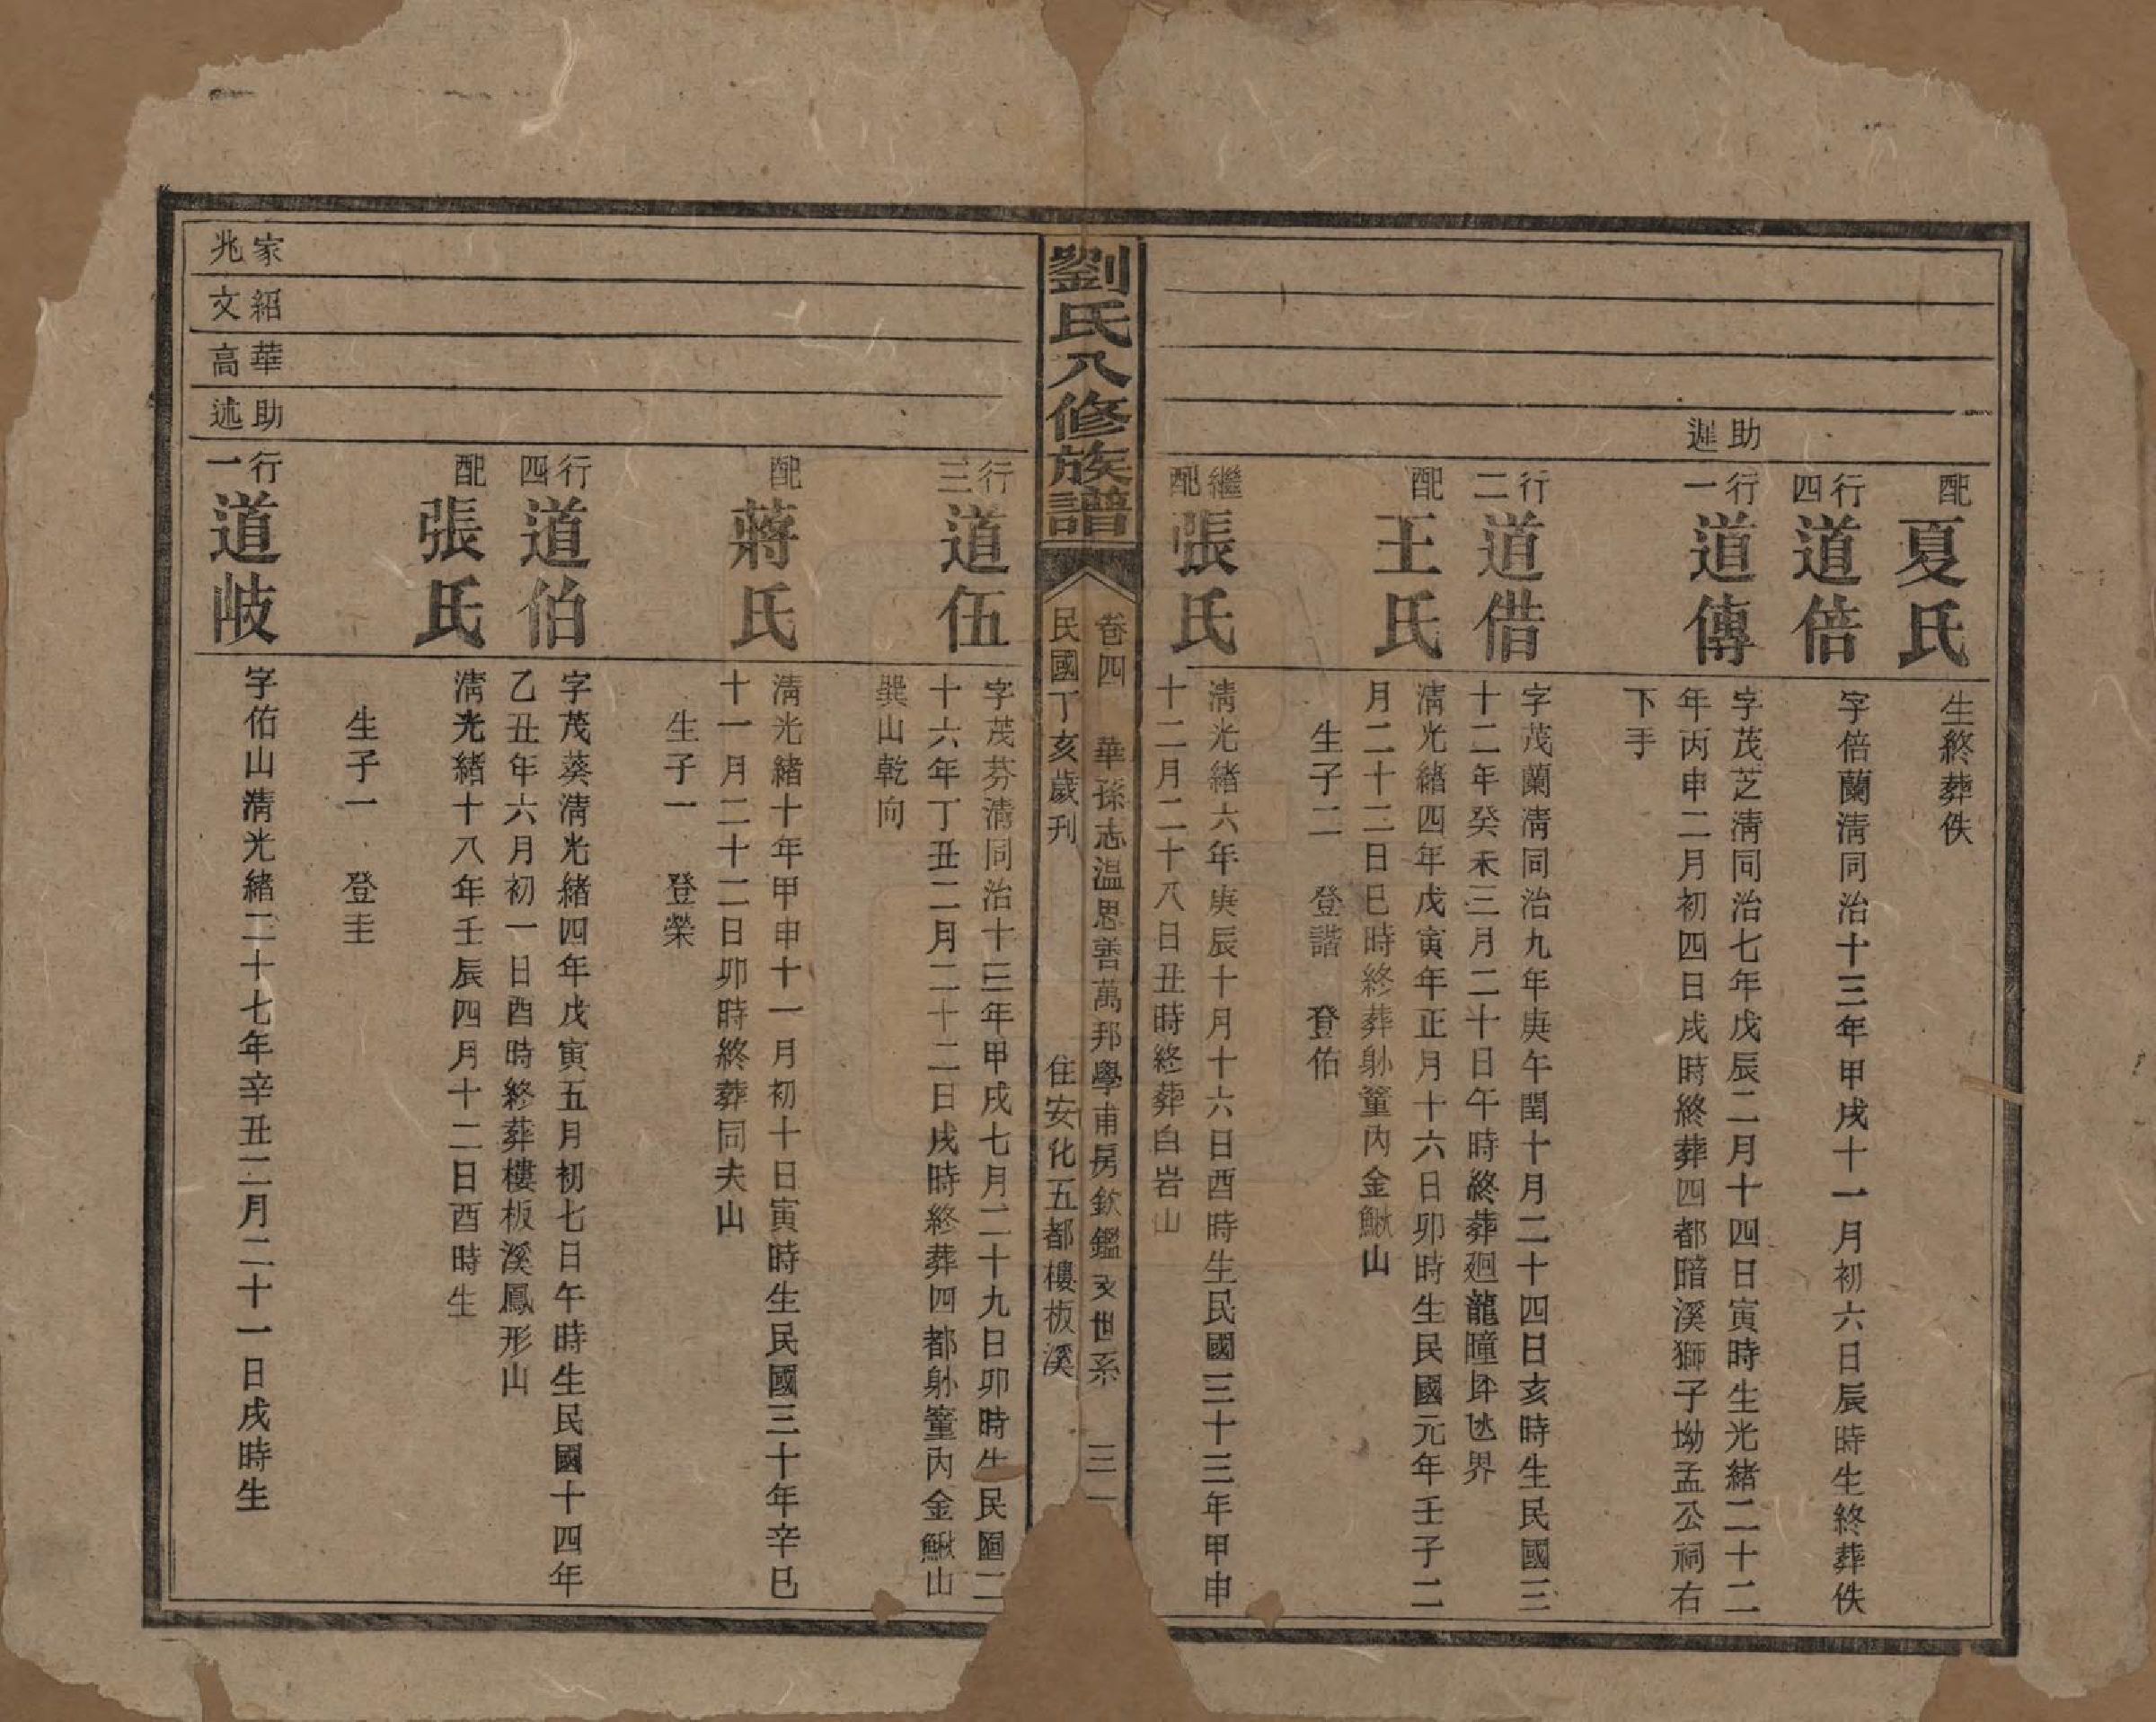 配夏氏
生終葬佚
行四道倍
字倍蘭淸同治十三年甲戌十一月初六日辰時生終葬佚
助遲
行一道傳
字茂芝淸同治七年戊辰二月十四日寅時生光緒二十二
年丙申二月初四日戌時終葬四都暗溪獅子坳孟公祠右
下手
行二道借
字茂蘭淸同治九年庚午閏十月二十四日亥時生民國三
十二年癸未三月二十日午時終葬廻龍疃界
配王氏
淸光緒四年戊寅年正月十六日卯時生民國元年壬子二
月二十二日巳時終葬躲簹內金鰍山
生子二　登諧　登佑
繼配張氏
淸光緒六年庚辰十月十六日酉時生民國三十三年甲申
十二月二十八日丑時終葬白岩山
劉氏八修族譜
卷四　華孫志温思善萬邦學甫房欽鑑文世系　三一
民國丁亥歲刋　住安化五都樓板溪
行三道伍
字茂芬淸同治十三年甲戌七月二十九日卯時生民國二
十六年丁丑二月二十二日戌時終葬四都躲簹內金鰍山
巽山乾向
配蔣氏
淸光緒十年甲申十一月初十日寅時生民國三十年辛巳
十一月二十二日卯時終葬同夫山
生子一　登榮
行四道伯
字茂葵淸光緒四年戊寅五月初七日午時生民國十四年
乙丑年六月初一日酉時終葬樓板溪鳳形山
配張氏
淸光緒十八年壬辰四月十二日酉時生
生子一　登圭
家兆
紹文
華高
助述
行一道岐
字佑山淸光緒二十七年辛丑二月二十一日戌時生